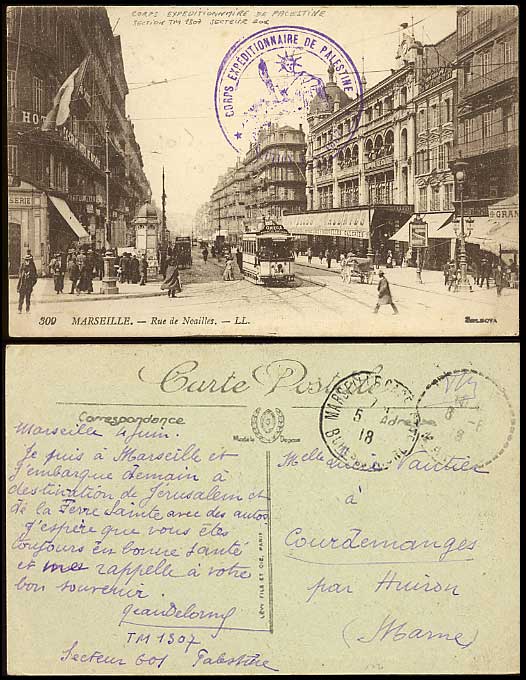 CORPS EXPÉDITIONNAIRE DE PALESTINE
SECTION TM 1307 SECTEUR 601
CORPS EXPÉDITIONNAIRE DE PALESTINE
HOT
GRAN
309 MARSEILLE. — Rue de Noailles. — LL.
Carte Postale
Correspondance
Adresse
Modèle Déposé
MARSEILLE GARE
5
18
Marseille 4 juin.
Je suis à Marseille et
j'embarque demain à
destination de Jerusalem et
de la Terre Sainte avec des autos
J'espère que vous êtes
toujours en bonne santé
et me rappelle à votre
bon souvenir.
Jean Delorme
TM 1307
Secteur 601 Palestine
LÉVY FILS ET CIE, PARIS
Melle
à
Courdemanges
par Huiron
(Marne)